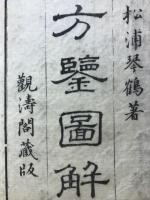 松浦琴鶴著
方鑒圖解
觀濤閣藏版